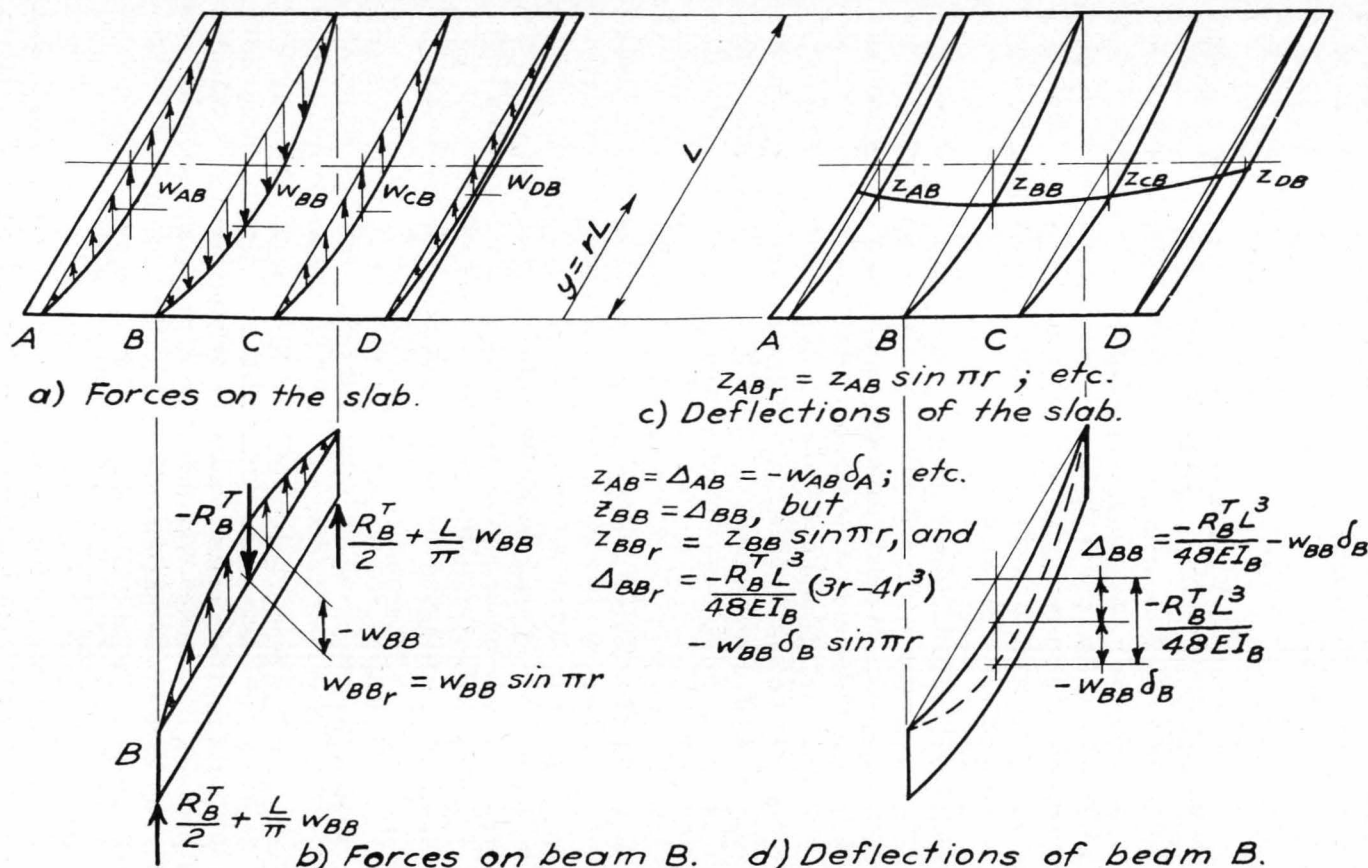 w_AB w_BB w_CB w_DB
L
y=rL
z_AB z_BB z_CB z_DB
A B C D
A B C D
a) Forces on the slab.
z_AB_r = z_AB sin πr ; etc.
c) Deflections of the slab.
-R_B^T
R_B^T/2 + L/π w_BB
-w_BB
w_BB_r = w_BB sin πr
B
R_B^T/2 + L/π w_BB
b) Forces on beam B.
z_AB = Δ_AB = -w_AB δ_A; etc.
z_BB = Δ_BB, but
z_BB_r = z_BB sin πr, and
Δ_BB_r = -R_B^T L^3/48EI_B (3r-4r^3)
-w_BB δ_B sin πr
Δ_BB = -R_B^T L^3/48EI_B - w_BB δ_B
-R_B^T L^3/48EI_B
-w_BB δ_B
d) Deflections of beam B.